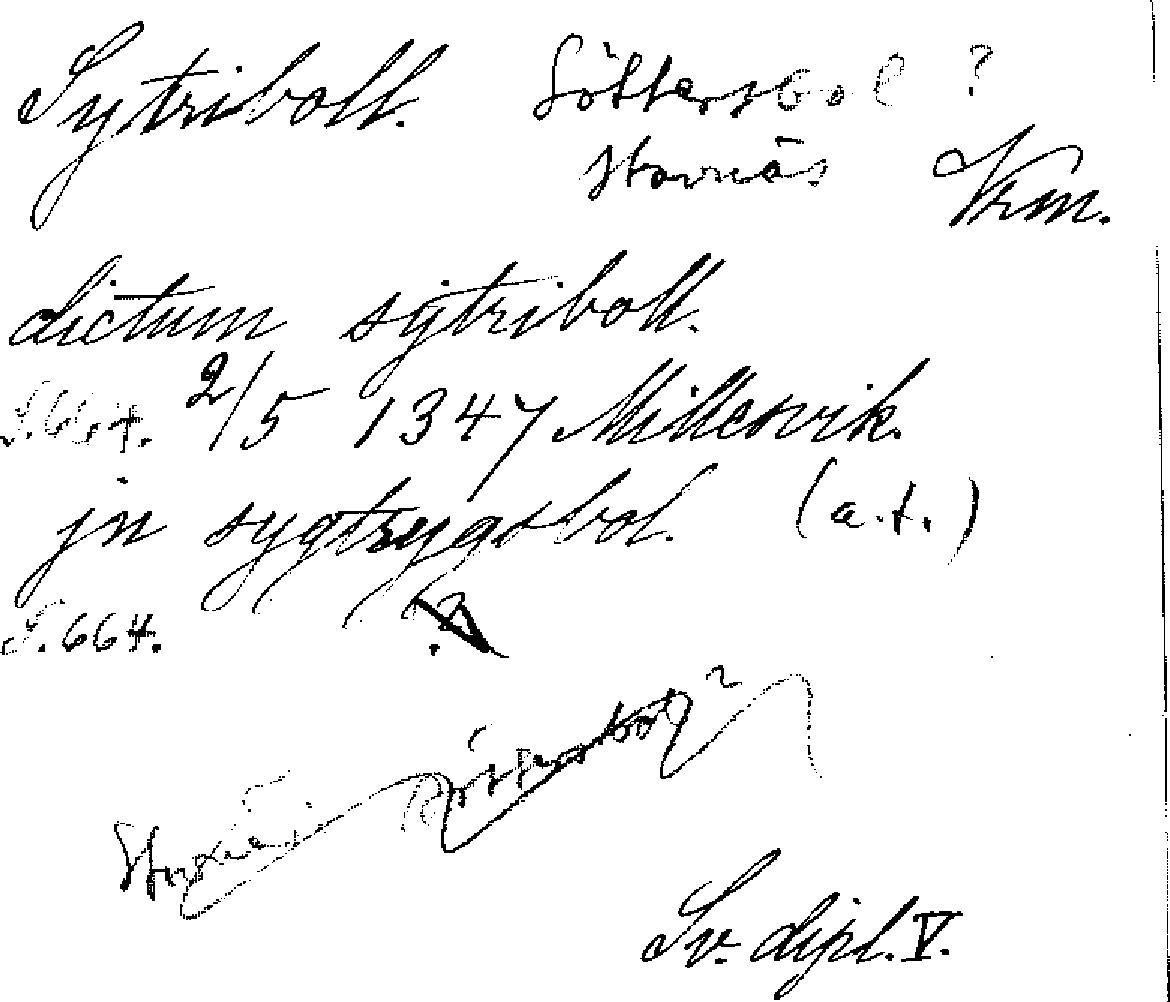 Sytriboll. Söttersbol ?
Stavnäs Vrm.
dictum sytriboll.
S. 664. 2/5 1347 Millesvik.
jn sygtrygsbol. (a.t.)
S. 664.
Sv. dipl. V.